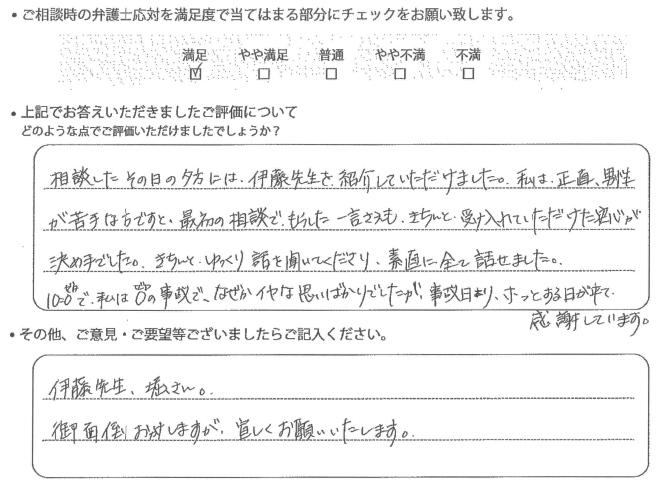 • ご相談時の弁護士応対を満足度で当てはまる部分にチェックをお願い致します。
満足 やや満足 普通 やや不満 不満
☑ □ □ □ □
• 上記でお答えいただきましたご評価について
どのような点でご評価いただけましたでしょうか？
相談したその日の夕方には、伊藤先生を紹介していただけました。私は、正直、男性
が苦手な方ですと、最初の相談で、もらした一言さえも、きちんと受け入れていただけた安心が
決め手でした。きちんと、ゆっくり話を聞いてくださり、素直に全て話せました。
10-0で、私は0の事故で、なぜかイヤな思いばかりでしたが、事故日より、ホッとする日が来て
感謝しています。
• その他、ご意見・ご要望等ございましたらご記入ください。
伊藤先生、堀さん。
御面倒お対しますが、宜しくお願いいたします。